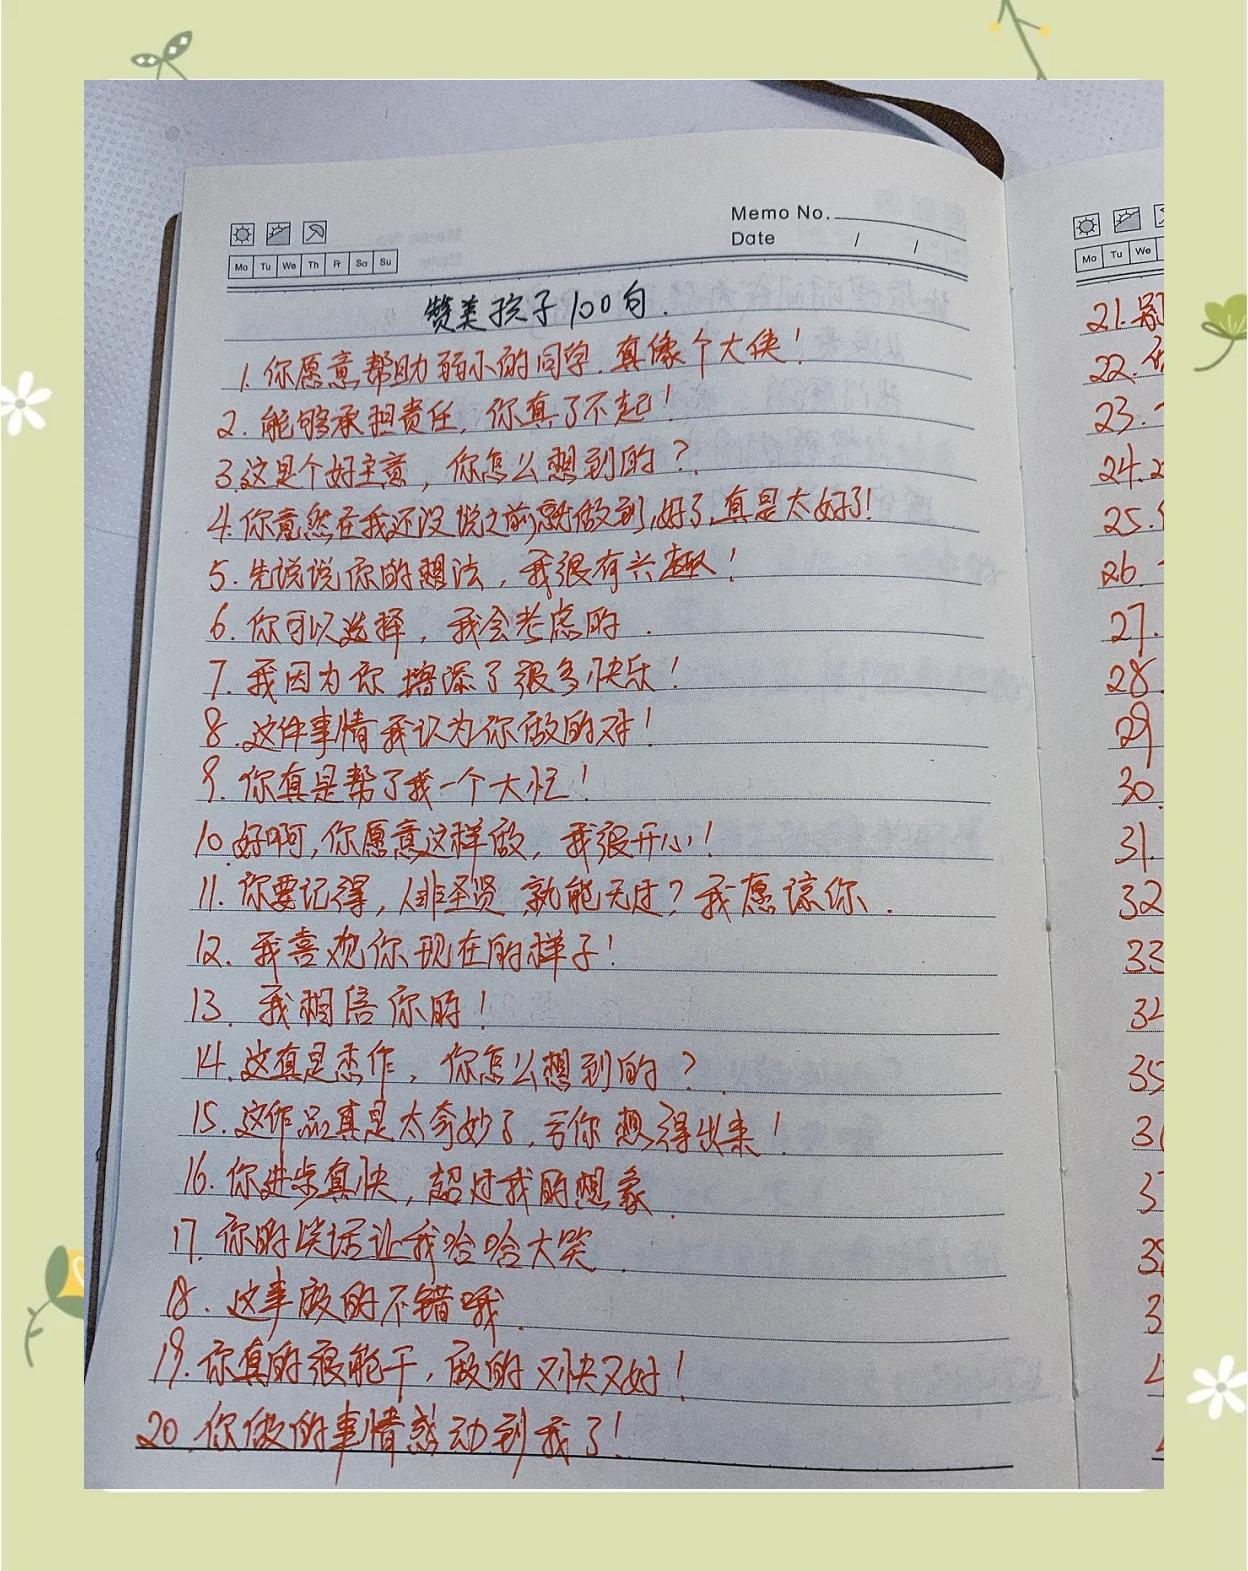 Memo No.
Date / /
Mo Tu We Th Fr Sa Su
赞美孩子100句.
1.你愿意帮助弱小的同学.真像个大侠!
2.能够承担责任,你真了不起!
3.这是个好主意,你怎么想到的?
4.你竟然在我还没说之前就做到,好了,真是太好了!
5.先说说你的想法,我很有兴趣!
6.你可以选择,我会考虑的.
7.我因为你增添了很多快乐!
8.这件事情我认为你做的对!
9.你真是帮了我一个大忙!
10.好啊,你愿意这样做,我很开心!
11.你要记得,人非圣贤 孰能无过?我愿谅你.
12.我喜欢你现在的样子!
13.我相信你的!
14.这真是杰作,你怎么想到的?
15.这作品真是太奇妙了,亏你想得出来!
16.你进步真快,超过我的想象.
17.你的笑话让我哈哈大笑.
18.这事做的不错哦.
19.你真的很能干,做的又快又好!
20.你做的事情感动到我了!
Mo Tu We
21.别
22.
23.
24.
25.
26.
27.
28.
29
30.
31.
32
33
35